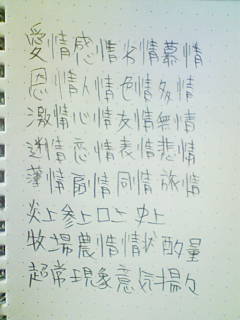 愛情感情火情慕情
恩情人情色情多情
激情心情友情無情
逑情恋情表情悲情
薄情扇情同情旅情
炎上参上口上史上
牧場農情情状酌量
超常現象意気揚々